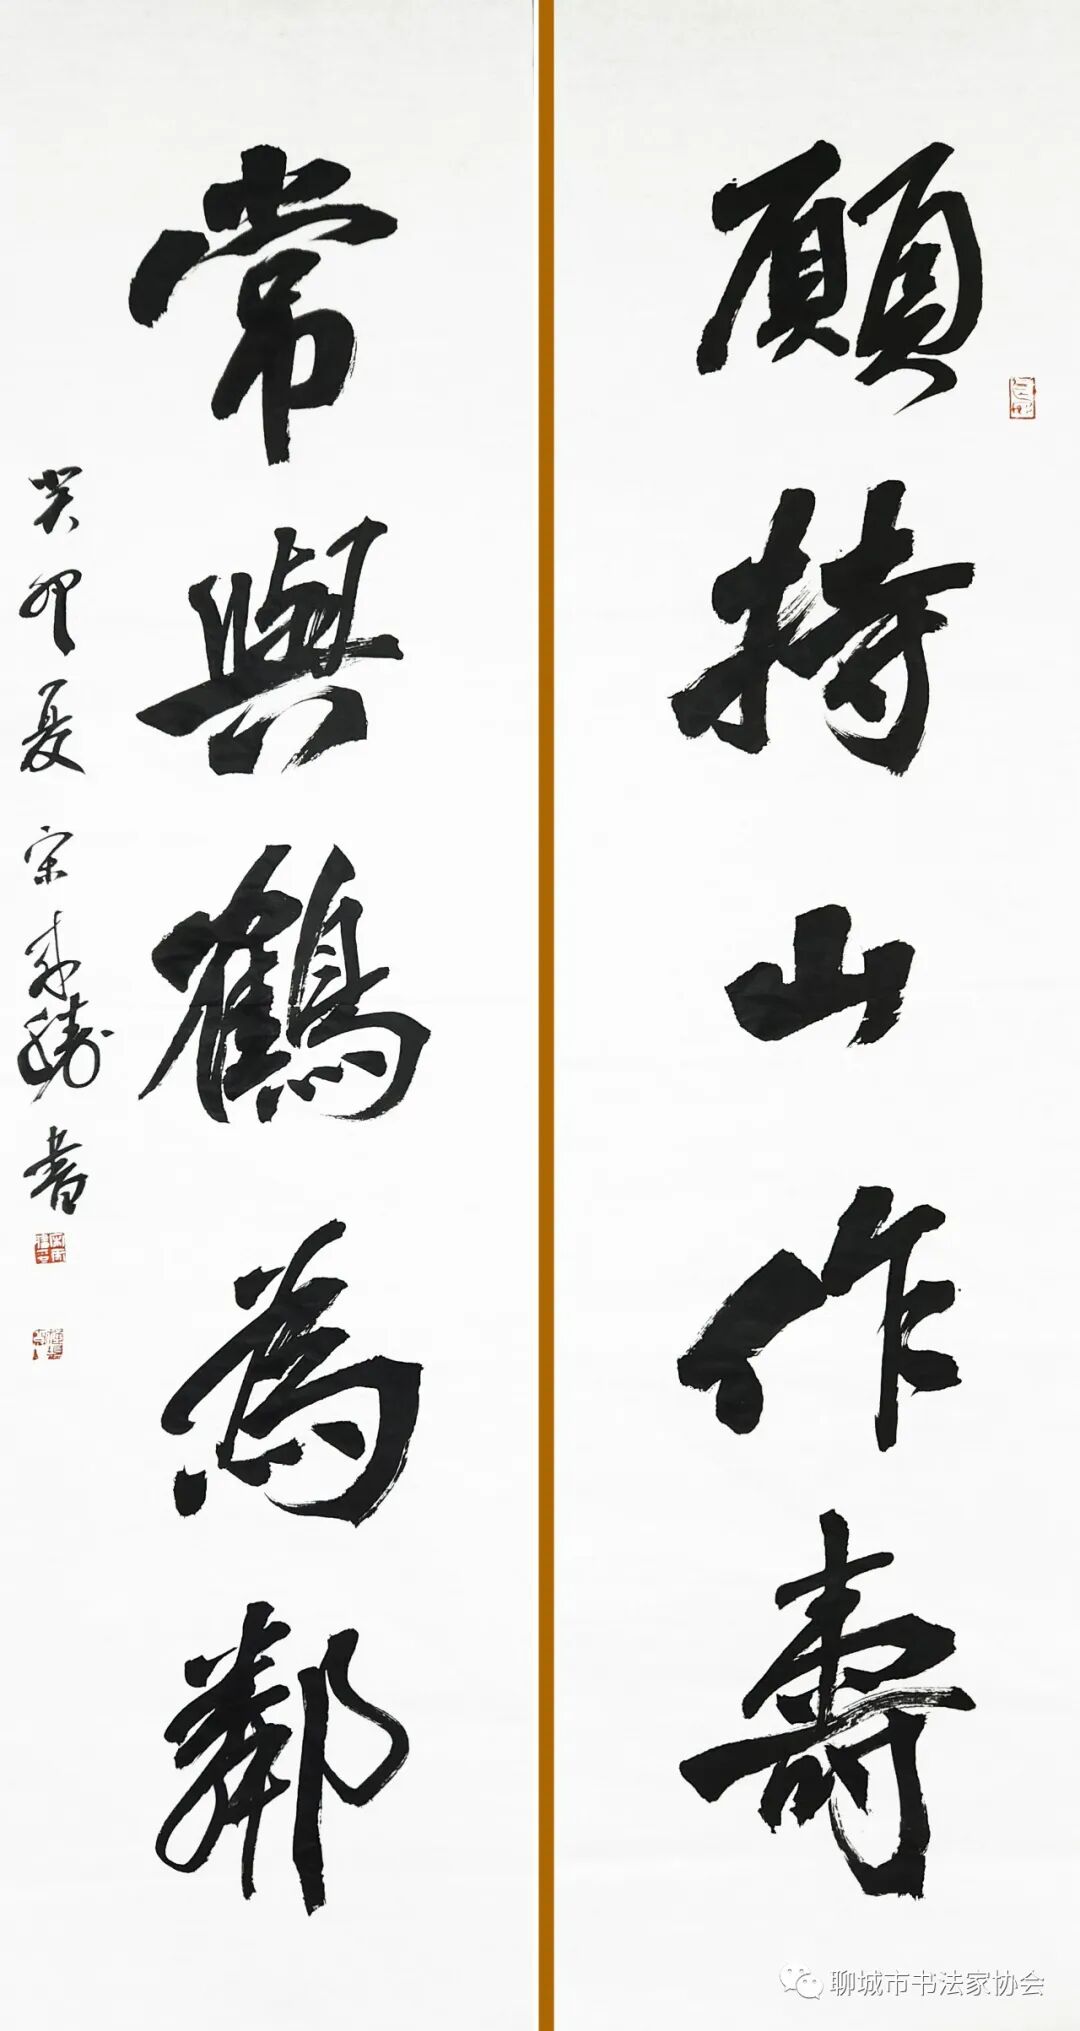 願持山作壽
常與鶴為鄰
癸卯夏宋来勝書
聊城市书法家协会